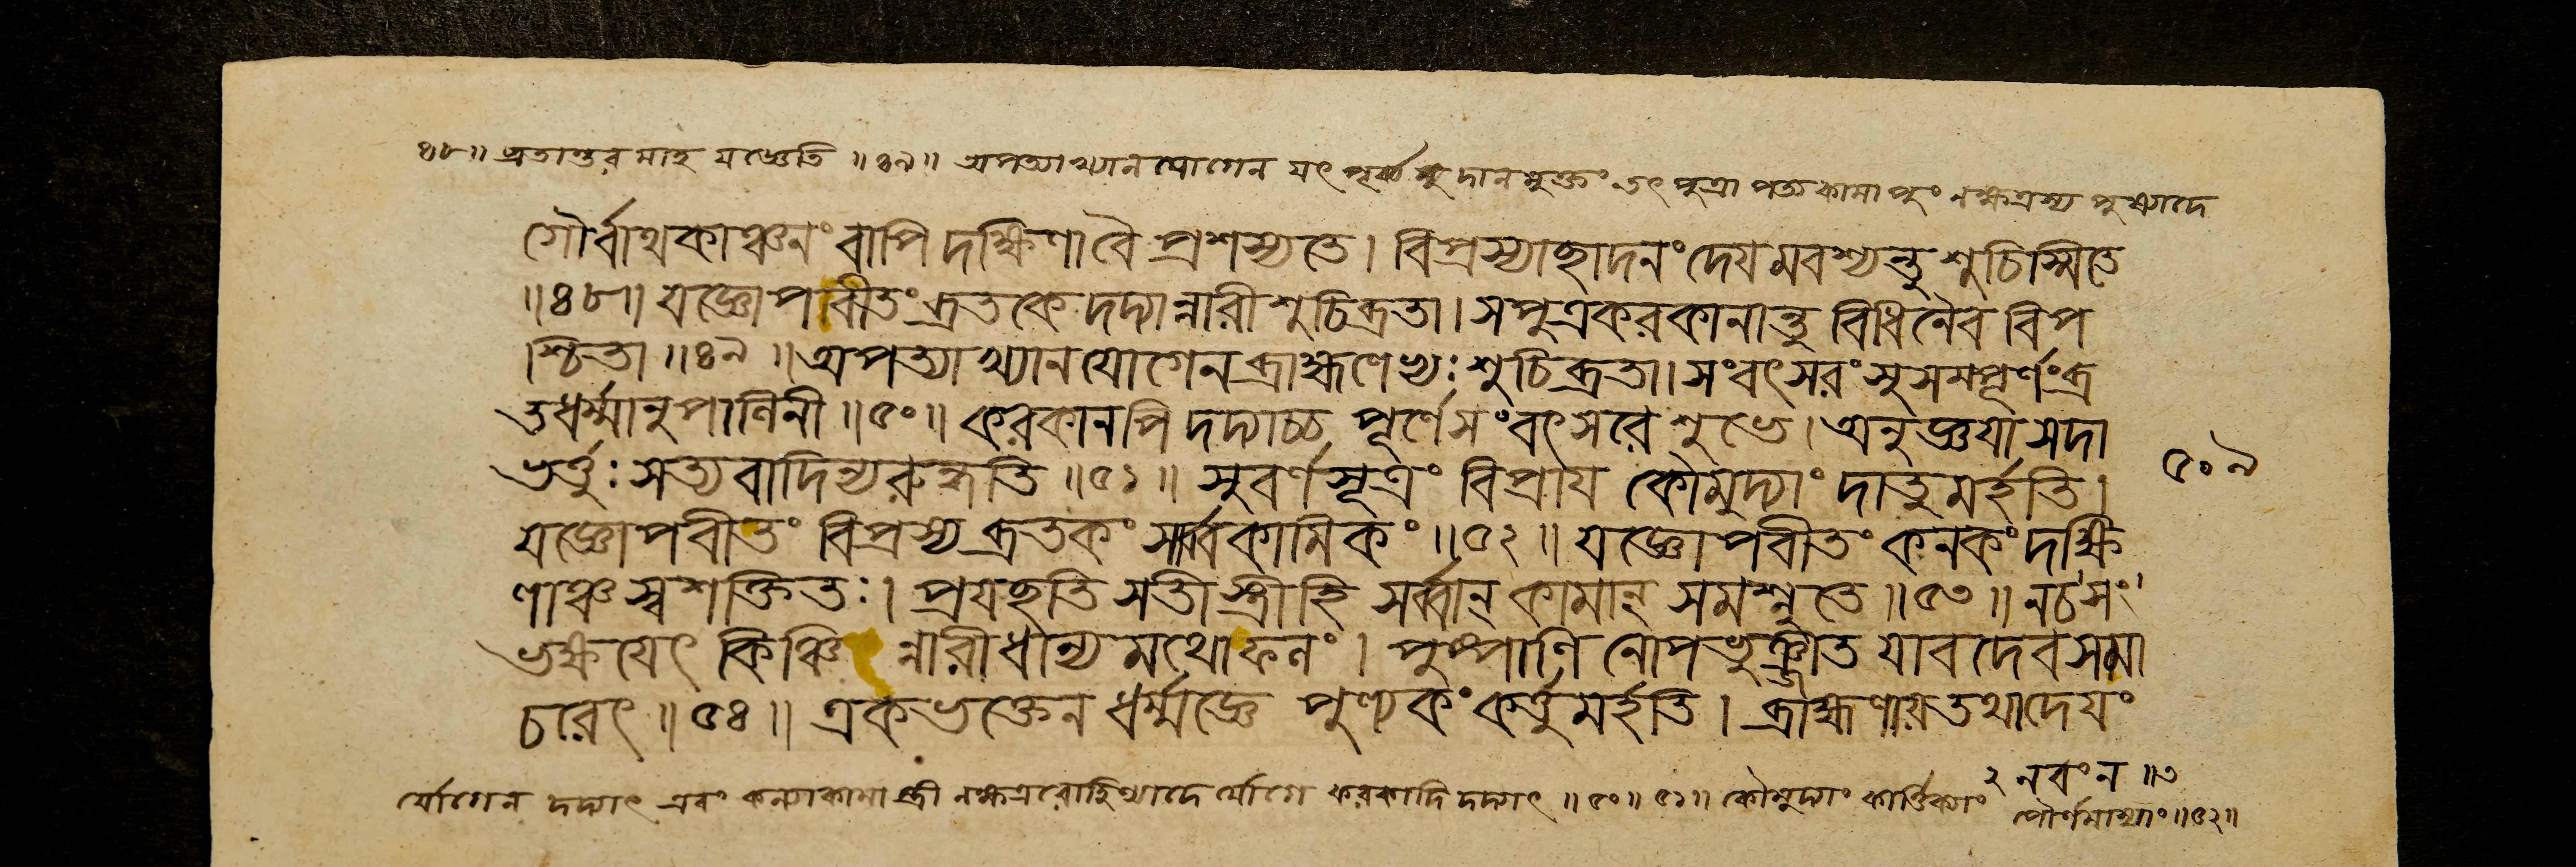 ৪৮॥ ব্রতান্তরমাহ যজ্ঞেতি ॥৪৯॥ অপত্যাখ্যানযোগেন যৎ পূর্ব্বং দানমুক্তং তৎ পুত্রাপত্যকামা পুং নক্ষত্রস্য পুষ্যাদে
গৌর্বাথকাঞ্চনং বাপি দক্ষিণা বৈ প্রশস্যতে। বিপ্রস্যাছাদনং দেয়মবশ্যন্তু শুচিস্মিতে
॥৪৮॥ যজ্ঞোপবীতং ব্রতকে দদ্যান্নারী শুচিব্রতা। সপুত্রকরকানান্তু বিধিনৈব বিপ
শ্চিতা ॥৪৯॥ অপত্যাখ্যানযোগেন ব্রাহ্মণেভ্যঃ শুচিব্রতা। সংবৎসরং সুসমপূর্ণং ব্র
তধর্ম্মানুপালিনী ॥৫০॥ করকানপি দদ্যাচ্চ পূর্ণে সংবৎসরে শুভে। অনুজ্ঞয়া সদা
ভর্ত্তুঃ সত্যবাদিন্যরুন্ধতি ॥৫১॥ সুবর্ণসূত্রং বিপ্রায় কৌমুদ্যাং দাতুমর্হতি।
৫০৯
যজ্ঞোপবীতং বিপ্রস্য ব্রতকং সার্ব্বকামিকং ॥৫২॥ যজ্ঞোপবীতং কনকং দক্ষি
ণাঞ্চ স্বশক্তিতঃ। প্রযছতি সতী স্ত্রী হি সর্ব্বান্ কামান্ সমশ্নুতে ॥৫৩॥ নচ সং
ভক্ষয়েৎ কিঞ্চি ন্নারী ধান্যমথোফলং। পুষ্পাণি নোপভুঞ্জীত যাবদেব সমা
চরেৎ ॥৫৪॥ একভক্তেন ধর্ম্মজ্ঞে পুণ্যকং কর্ত্তুমর্হতি। ব্রাহ্মণায় তথা দেয়ং
২ নবং ন ॥৩
র্যোগেন দদ্যাৎ এবং কন্যাকামা স্ত্রী নক্ষত্ররোহিণ্যাদের্যোগে করকাদি দদ্যাৎ ॥৫০॥ ৫১॥ কৌমুদ্যাং কার্ত্তিক্যাং
পৌর্ণমাস্যাং ॥৫২॥